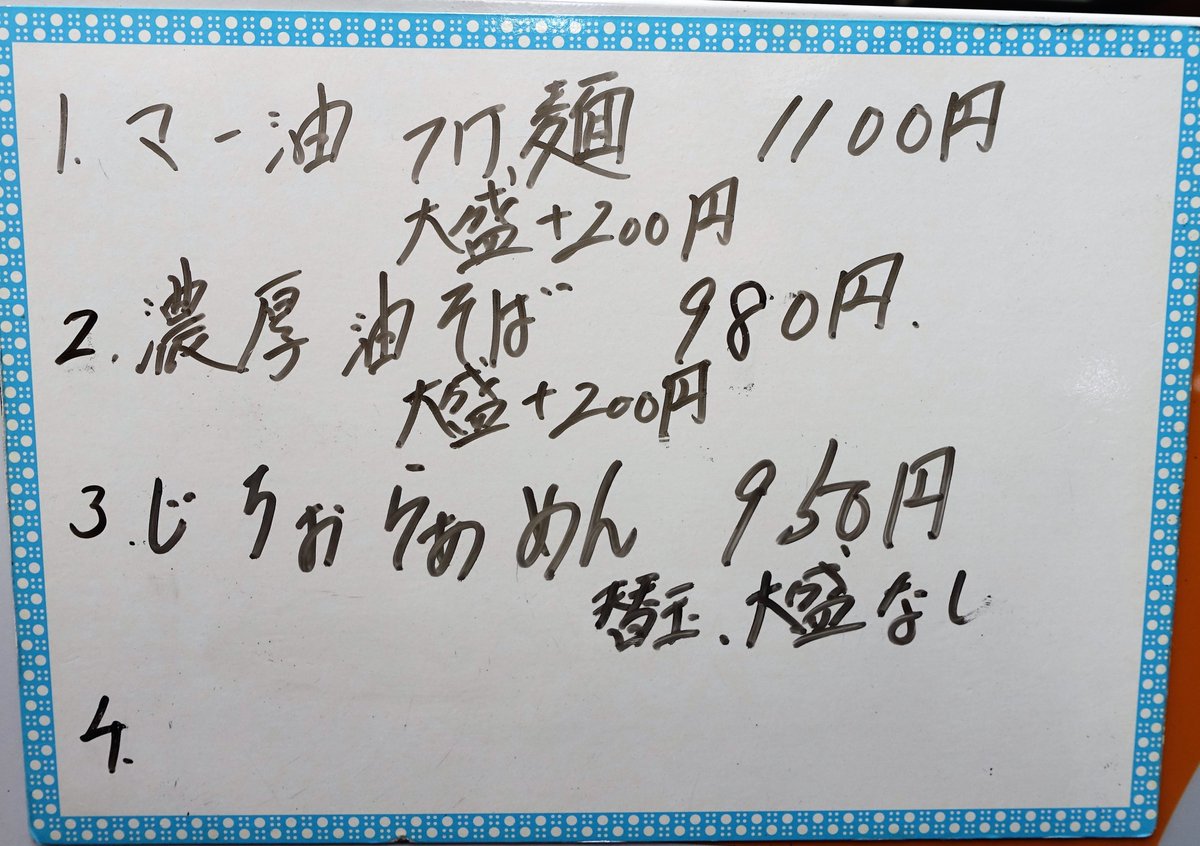 1. マー油 つけ麺 1100円
大盛+200円
2. 濃厚油そば 980円.
大盛+200円
3. じちおらあめん 950円
替玉、大盛なし
4.